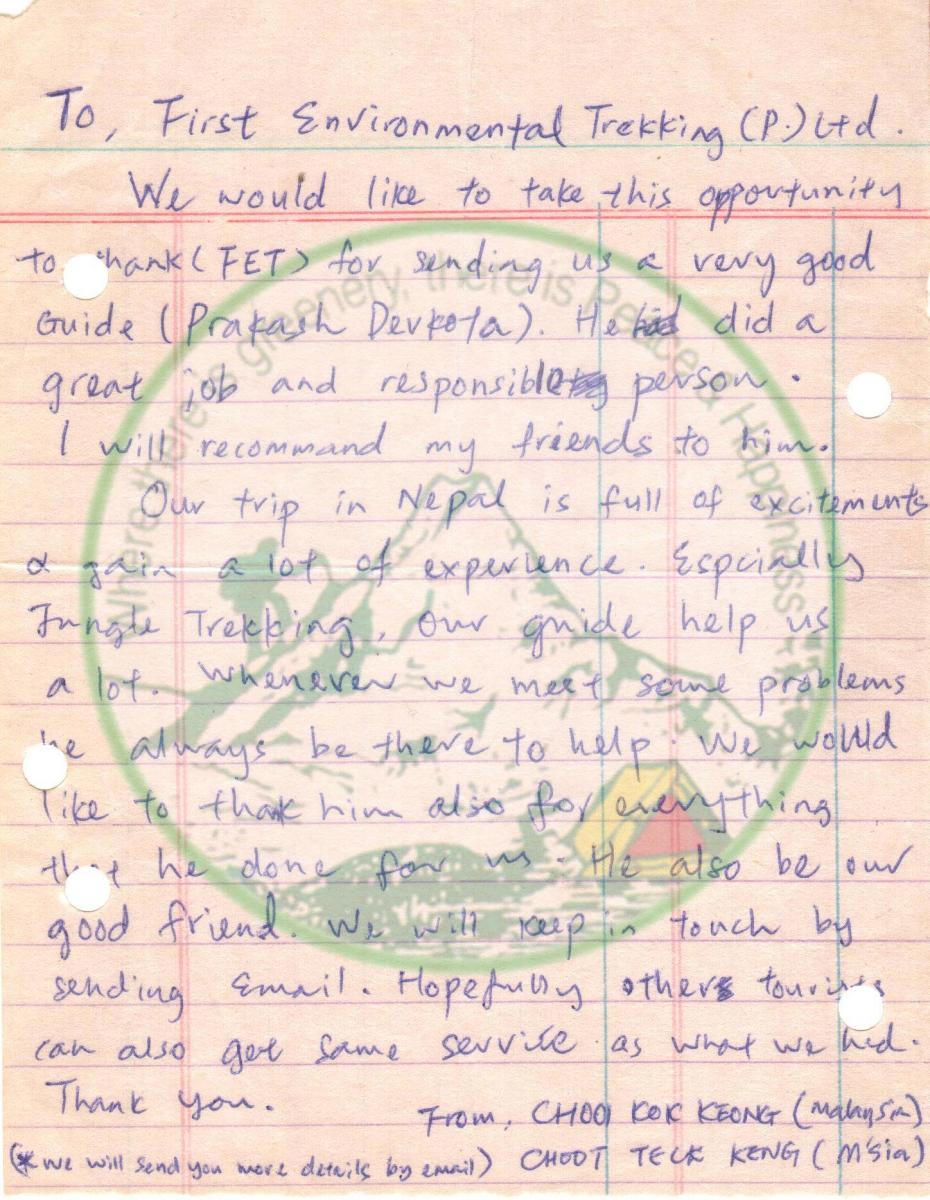 To, First Environmental Trekking (P.) Ltd.
We would like to take this opportunity
to thank (FET) for sending us a very good
Guide (Prakash Devkota). He did a
great job and responsible person.
I will recommand my friends to him.
Our trip in Nepal is full of excitements
& gain a lot of experience. Espcially
Jungle Trekking, Our guide help us
a lot. Whenever we meet some problems
he always be there to help. We would
like to thak him also for everything
that he done for us. He also be our
good friend. We will keep in touch by
sending Email. Hopefully other tourists
can also get same service as what we had.
Thank you.
From, CHOOI KOK KEONG (Malaysia)
(* we will send you more details by email) CHOOT TECK KENG (M'sia)
Where there is greenery, there is Peace & Happiness